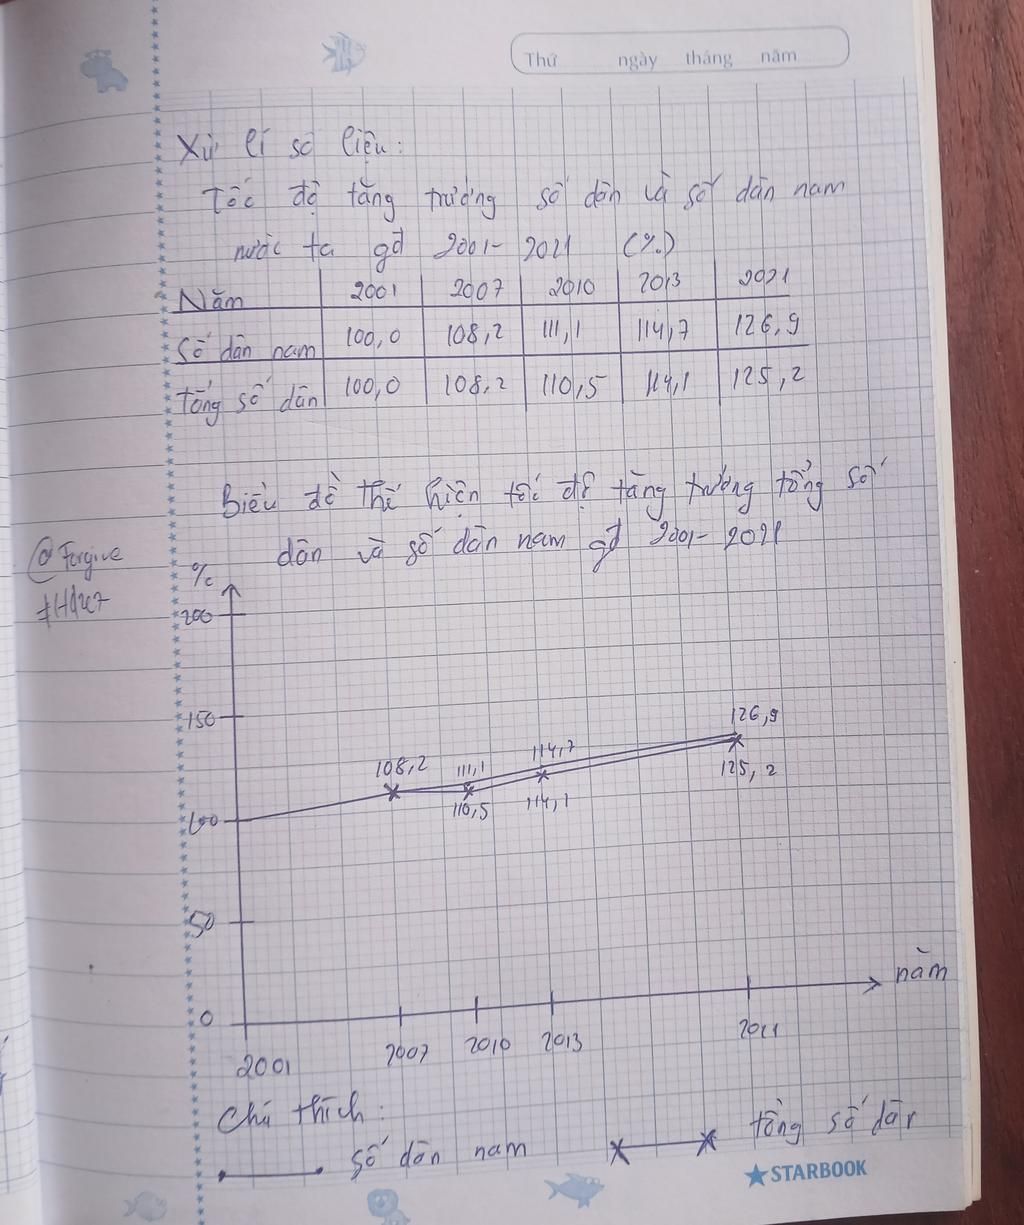 Thứ ngày tháng năm
Xử lí số liệu:
Tốc độ tăng trưởng số dân và số dân nam
nước ta gđ 2001- 2021 (%)
Năm 2001 2007 2010 2013 2021
Số dân nam 100,0 108,2 111,1 114,7 126,9
Tổng số dân 100,0 108,2 110,5 114,1 125,2
Biểu đồ thể hiện tốc độ tăng trưởng tổng số
dân và số dân nam gđ 2001- 2021
@Forgive
%
200
150
126,9
114,7
108,2 111,1
125,2
110,5 114,1
100
50
năm
0
2001 2007 2010 2013 2021
Chú thích:
số dân nam tổng số dân
STARBOOK